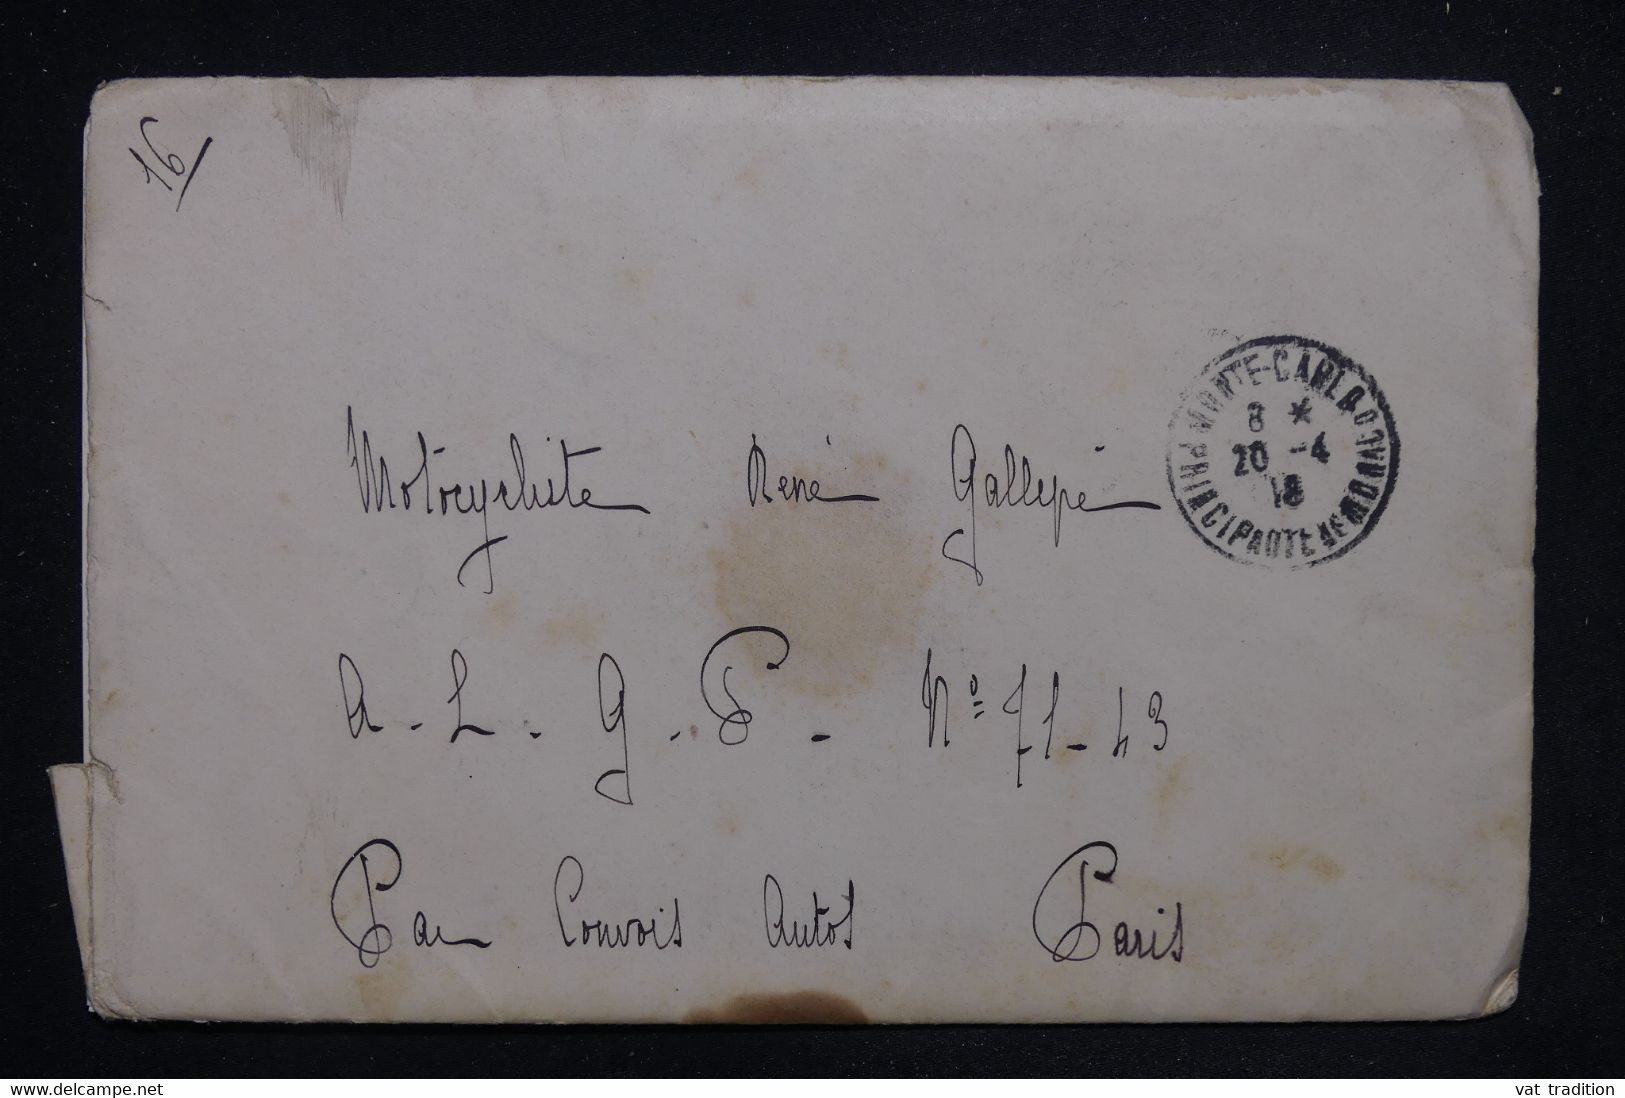 16
Motocycliste René Gallépé
MONTE-CARLO
PRINCIPAUTE DE MONACO
8 *
20 -4
18
A. L. G. P. Nº 71-43
Par Convois Autos Paris
www.delcampe.net
vat tradition